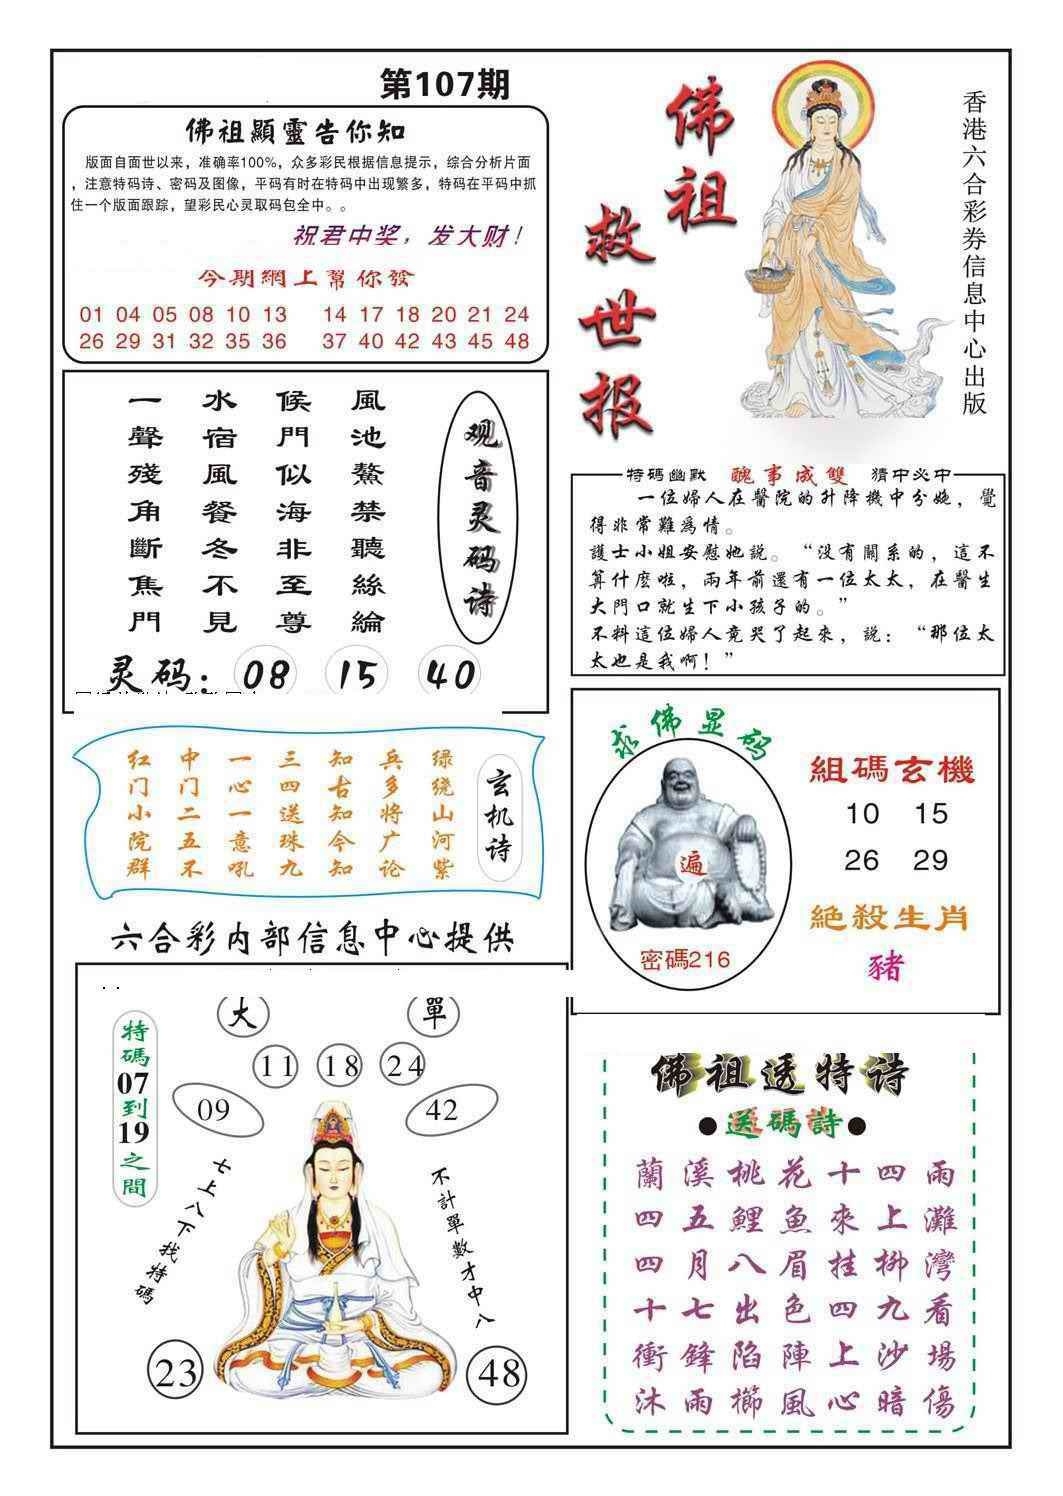 第107期
佛祖顯靈告你知
版面自面世以来，准确率100%，众多彩民根据信息提示，综合分析片面
，注意特码诗、密码及图像，平码有时在特码中出现繁多，特码在平码中抓
住一个版面跟踪，望彩民心灵取码包全中。。
祝君中奖，发大财！
今期網上幫你發
01 04 05 08 10 13 14 17 18 20 21 24
26 29 31 32 35 36 37 40 42 43 45 48
佛祖
救世报
香港六合彩券信息中心出版
观音灵码诗
風池鰲禁聽絲綸
侯門似海非至尊
水宿風餐冬不見
一聲殘角斷焦門
灵码：08 15 40
特碼幽默 醜事成雙 猜中必中
一位婦人在醫院的升降機中分娩，覺
得非常難爲情。
護士小姐安慰她説。“没有關系的，這不
算什麽啦，兩年前還有一位太太，在醫生
大門口就生下小孩子的。”
不料這位婦人竟哭了起來，説：“那位太
太也是我啊！”
玄机诗
绿绕山河紫
兵多将广论
知古知今知
三四送珠九
一心一意吼
中门二五不
红门小院群
求佛显码
遍
密碼216
組碼玄機
10 15
26 29
絕殺生肖
豬
六合彩内部信息中心提供
大 單
11 18 24
09 42
特碼07到19之間
七上八下找特碼
不計單數才中八
23 48
佛祖透特诗
●送碼詩●
蘭溪桃花十四雨
四五鯉魚來上灘
四月八眉挂柳灣
十七出色四九看
衝鋒陷陣上沙場
沐雨櫛風心暗傷